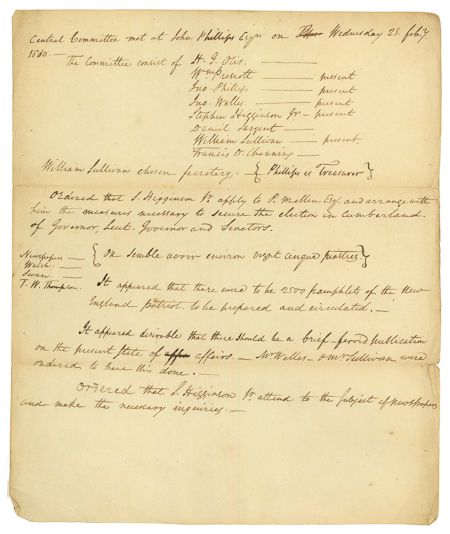 Central Committee met at John Phillips Esqrs on Wednesday 25. Feby
The Committee consist of H. G. Otis. —
Wm Prescott — present
Jno. Phillips — present
Jno. Welles — present
Stephen Higginson Jr — present
Daniel Sargent —
William Sullivan — present
Francis D. Channing —
William Sullivan chosen secretary. — { Phillips is Treasurer }
Ordered that S. Higginson Jr. apply to P. Mellen Esq. and arrange with
him the measures necessary to secure the election in Cumberland.
of Governor, Lieut. Governor and Senators.
Newspaper —
{ On semble avoir environ vingt cinque piastres }
Walsh. —
Swan. —
T. W. Thompson.
It appeared that there were to be 2500 pamphlets of the New
England Patriot. to be prepared and circulated. —
It appeared desirable that there should be a brief publication
on the present state of affairs. — Mr Welles & Mr Sullivan were
ordered to have this done. —
Ordered that S. Higginson Jr. attend to the subject of newspapers
and make the necessary inquiries. —